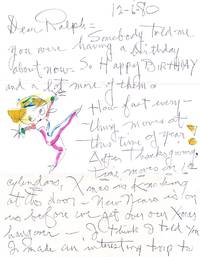 12-6-80
Dear Ralph =
Somebody told me
you were having a birthday
about now = So Happy BIRTHDAY
and a lot more of them =
How fast every-
thing moves at
this time of year.
After Thanksgiving
time moves on 12
cylenders, Xmas is knocking
at the door - New Years is on
us before we get over our Xmas
hangover - I think I told you
I made an interesting trip to